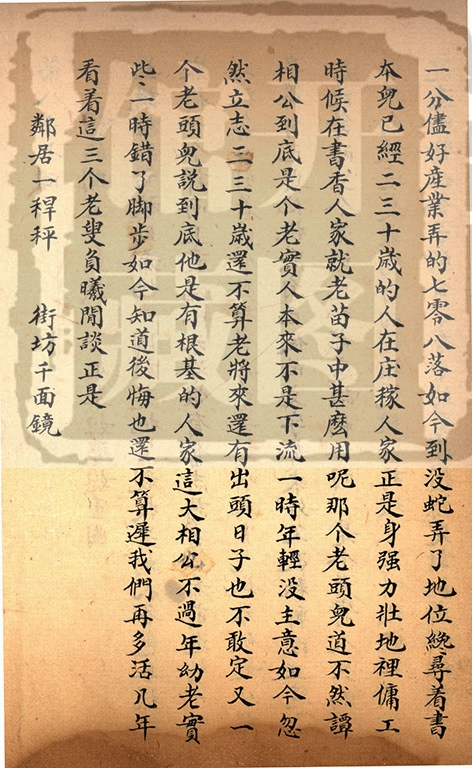 一分儘好產業弄的七零八落如今到没蛇弄了地位纔尋着書
本兒已經二三十歲的人在庄稼人家正是身强力壯地裡傭工
時候在書香人家就老苗子中甚麽用呢那个老頭兒道不然譚
相公到底是个老實人本來不是下流一時年輕没主意如今忽
然立志二三十歲還不算老將來還有出頭日子也不敢定又一
个老頭兒説到底他是有根基的人家這大相公不過年幼老實
些一時錯了脚步如今知道後悔也還不算遲我們再多活几年
看着這三个老叟負曦閒談正是
鄰居一稈秤 街坊千面鏡